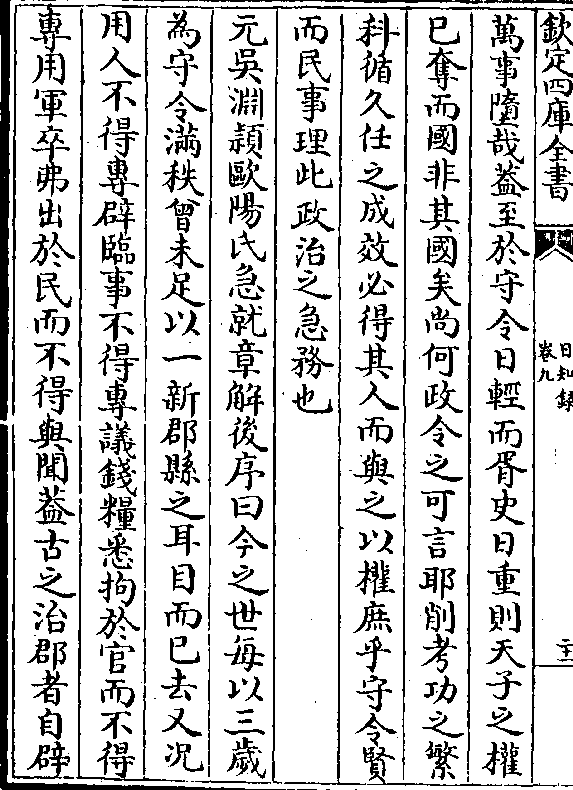 欽定四庫全書
日知録
卷九
二十二
萬事墮哉蓋至於守令日輕而胥吏日重則天子之權
已奪而國非其國矣尚何政令之可言耶削考功之繁
科循久任之成效必得其人而與之以權庶乎守令賢
而民事理此政治之急務也
元吳淵頴歐陽氏急就章解後序曰今之世每以三歲
為守令滿秩曾未足以一新郡縣之耳目而已去又况
用人不得專辟臨事不得專議錢糧悉拘於官而不得
專用軍卒弗出於民而不得與聞蓋古之治郡者自辟